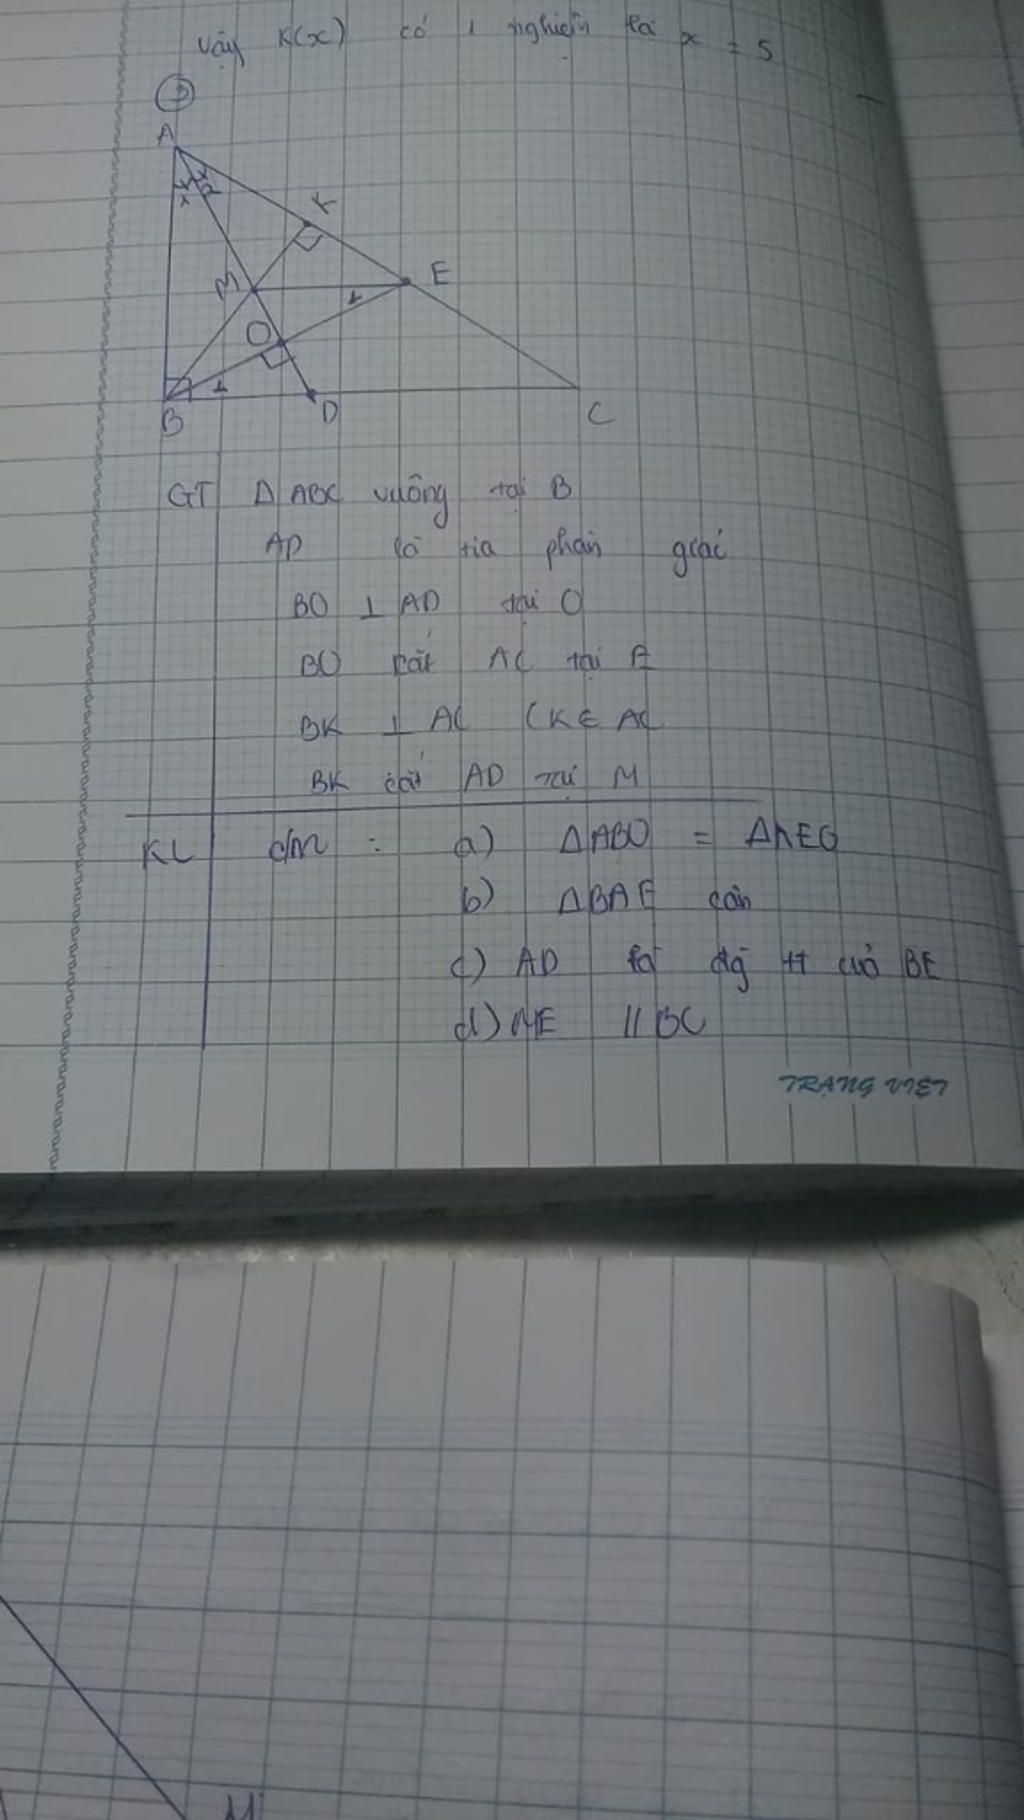 vậy K(x) có 1 nghiệm là x = 5
A
K
M
E
1
O
1
B
D
C
GT Δ ABC vuông tại B
AD là tia phân giác
BO ⊥ AD tại O
BO cắt AC tại E
BK ⊥ AC (K ∈ AC
BK cắt AD tại M
KL c/m : a) ΔABO = ΔAEO
b) ΔBAE cân
c) AD là đg tt của BE
d) ME // BC
TRANG VIET
M